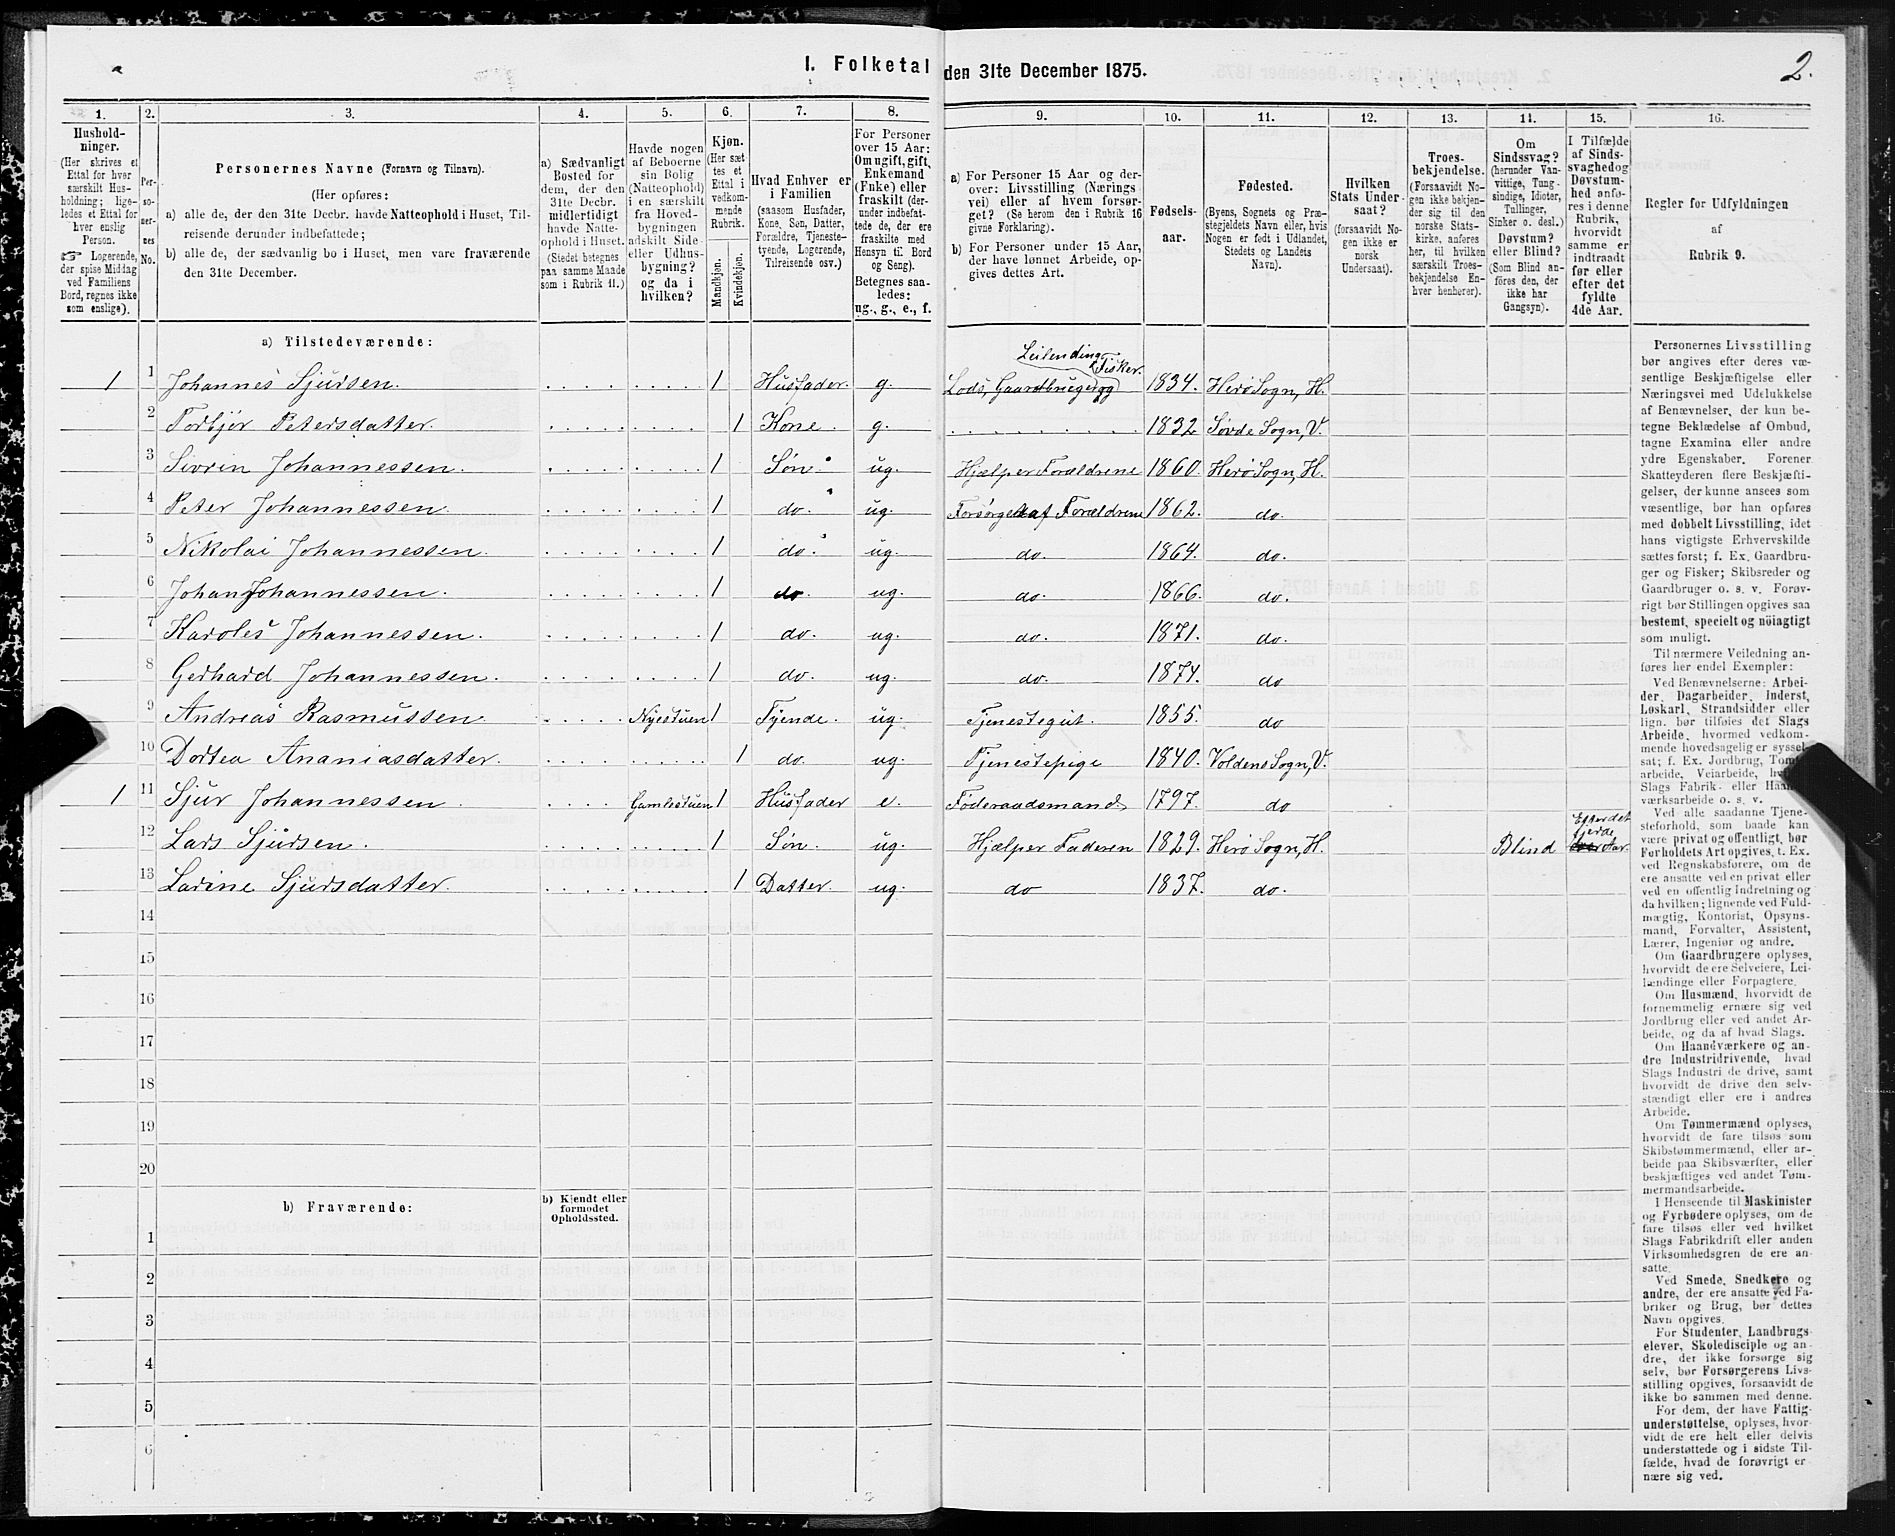 I. Folketal den 31te December 1875.
2.
1. 2. 3. 4. 5. 6. 7. 8. 9. 10. 11. 12. 13. 11. 15. 16.
Hushold-
ninger.
(Her skrives et
Ettal for hver
særskilt Hus-
holdning; lige-
ledes et Ettal for
hver enslig
Person.
☞ Logerende,
der spise Middag
ved Familiens
Bord, regnes ikke
som enslige).
Per-
so-
ner-
nes
No.
Personernes Navne (Fornavn og Tilnavn).
(Her opføres:
a) alle de, der den 31te Decbr. havde Natteophold i Huset, Til-
reisende derunder indbefattede;
b) alle de, der sædvanlig bo i Huset, men vare fraværende
den 31te December.
a) Sædvanligt
Bosted for
dem, der den
31te Decbr.
midlertidigt
havde Natte-
ophold i Huset.
(Stedet betegnes
paa samme Maade
som i Rubrik 11.)
Havde nogen
af Beboerne
sin Bolig
(Natteophold)
i en særskilt
fra Hoved-
bygningen
adskilt Side-
eller Udhus-
bygning?
og da i
hvilken?
Kjøn.
(Her sæt-
tes et
Ettal i
vedkom-
mende
Rubrik.
Mandkjøn.
Kvindekjøn.
Hvad Enhver er
i Familien
(saasom Husfader,
Kone, Søn, Datter,
Forældre, Tjeneste-
tyende, Logerende,
Tilreisende osv.)
For Personer
over 15 Aar:
Om ugift, gift,
Enkemand
(Enke) eller
fraskilt (der-
under indbefat-
tede de, der ere
fraskilte med
Hensyn til Bord
og Seng).
Betegnes saa-
ledes:
ug., g., e., f.
a) For Personer 15 Aar og der-
over: Livsstilling (Nærings
vei) eller af hvem forsør-
get? (Se herom den i Rubrik 16
givne Forklaring).
b) For Personer under 15 Aar,
der have lønnet Arbeide, op-
gives dettes Art.
Fødsels-
aar.
Fødested.
(Byens, Sognets og Præ-
stegjeldets Navn eller, hvis
Nogen er født i Udlandet,
Stedets og Landets
Navn).
Hvilken
Stats Under-
saat?
(forsaavidt No-
gen ikke er
norsk
Undersaat).
Troes-
bekjendelse.
(Forsaavidt No-
gen ikke bekjen-
der sig til den
norske Stats-
kirke, anføres
her, til hvilken
særskilt Troes-
bekjendelse En-
hver henhører).
Om
Sindssvag?
(herunder Van-
vittige, Tung-
sindige, Idioter,
Tullinger,
Sinker o. desl.)
Døvstum?
eller Blind?
(Som Blind an-
føres den, der
ikke har
Gangsyn).
I Tilfælde
af Sinds-
svaghed og
Døvstum-
hed anfø-
res i denne
Rubrik,
hvorvidt
samme er
indtraadt
før eller
efter det
fyldte
4de Aar.
Regler for Udfyldningen
af
Rubrik 9.
a) Tilstedeværende:
Leilending
Fisker.
1 1 Johannes Sjursen. 1 Husfader. g. Lods, Gaardbruger og 1834. Herø Sogn, H.
2 Torbjør Petersdatter. 1 Kone. g. 1832 Søvde Sogn, V.
3 Sivrin Johannessen. 1 Søn. ug. Hjælper Forældrene 1860. Herø Sogn, H.
4 Peter Johannessen. 1 do. ug. Forsørges af Forældrene 1862. do.
5 Nikolai Johannessen. 1 do. ug. do. 1864. do.
6 Johan Johannessen. 1 do. ug. do. 1866. do.
7 Karoles Johannessen. 1 do. ug. do. 1871. do.
8 Gerhard Johannessen. 1 do. ug. do. 1874. do
9 Andreas Rasmussen. Nyestuen 1 Tyende. ug. Tjenestegut. 1855. do
10 Dortea Ananiasdatter. 1 do. ug. Tjenestepige 1840. Voldens Sogn, V.
1 11 Sjur Johannessen. Gamlestuen 1 Husfader e. Føderaadsmand 1797. do
12 Lars Sjursen. 1 Søn. ug. Hjælper Faderen 1829. Herø Sogn, H. Blind Efter det fjerde Aar.
13 Larine Sjursdatter. 1 Datter. ug. do 1837. do.
14
15
16
17
18
19
20
b) Fraværende:
b) Kjendt eller
formodet
Opholdssted.
1
2
3
4
5
6
Personernes Livsstilling
bør angives efter deres væ-
sentlige Beskjæftigelse eller
Næringsvei med Udelukkelse
af Benævnelser, der kun be-
tegne Beklædelse af Ombud,
tagne Examina eller andre
ydre Egenskaber. Forener
Skatteyderen flere Beskjæfti-
gelser, der kunne ansees som
væsentlige, bør han opføres
med dobbelt Livsstilling, idet
hans vigtigste Erhvervskilde
sættes først; f. Ex. Gaardbru-
ger og Fisker; Skibsreder og
Gaardbruger o. s. v. Forøv-
rigt bør Stillingen opgives saa
bestemt, specielt og nöiagtigt
som muligt.
Til nærmere Veiledning an-
føres her endel Exempler:
Ved Benævnelserne: Arbei-
der, Dagarbeider, Inderst,
Løskarl, Strandsidder eller
lign. bør tilføies det Slags
Arbeide, hvormed vedkom-
mende hovedsagelig er syssel-
sat; f. Ex. Jordbrug, Tomt-
arbeide, Veiarbeide, hvilket
Slags Fabrik- eller Haand-
værksarbeide o. s. v.
Ved alle saadanne Tjene-
steforhold, som baade kan
være privat og offentligt, bør
Forholdets Art opgives, t. Ex.
ved Regnskabsførere, om de
ere ansatte ved en privat eller
ved en offentlig Indretning og
da hvilken; lignende ved Fuld-
mægtig, Kontorist, Opsyns-
mand, Forvalter, Assistent,
Lærer, Ingeniør og andre.
Om Gaardbrugere oplyses,
hvorvidt de ere Selveiere, Lei-
lændinge eller Forpagtere.
Om Husmænd, hvorvidt de
fornemmelig ernære sig ved
Jordbrug eller ved andet Ar-
beide, og da af hvad Slags.
Om Haandværkere og an-
dre Industridrivende, hvad
Slags Industri de drive, samt
hvorvidt de drive den selv-
stændigt eller ere i andres
Arbeide.
Om Tømmermænd oplyses,
hvorvidt de fare tilsøs som
Skibstømmermænd, eller ar-
beide paa Skibsværfter, eller
beskjæftiges ved andet Tøm-
mermandsarbeide.
I Henseende til Maskinister
og Fyrbødere oplyses, om de
fare tilsøs eller ved hvilket
Slags Fabrikdrift eller anden
Virksomhedsgren de ere an-
satte.
Ved Smede, Snedkere og
andre, der ere ansatte ved Fa-
briker og Brug, bør dettes
Navn opgives.
For Studenter, Landbrugs-
elever, Skoledisciple og an-
dre, der ikke forsørge sig
selv, bør Forsørgerens Livs-
stilling opgives, forsaavidt de
ikke bo sammen med denne.
For dem, der have Fattig-
understøttelse, oplyses, hvor-
vidt de ere helt eller delvis
understøttede og i sidste Til-
fælde, hvad de forøvrigt er
nære sig ved.